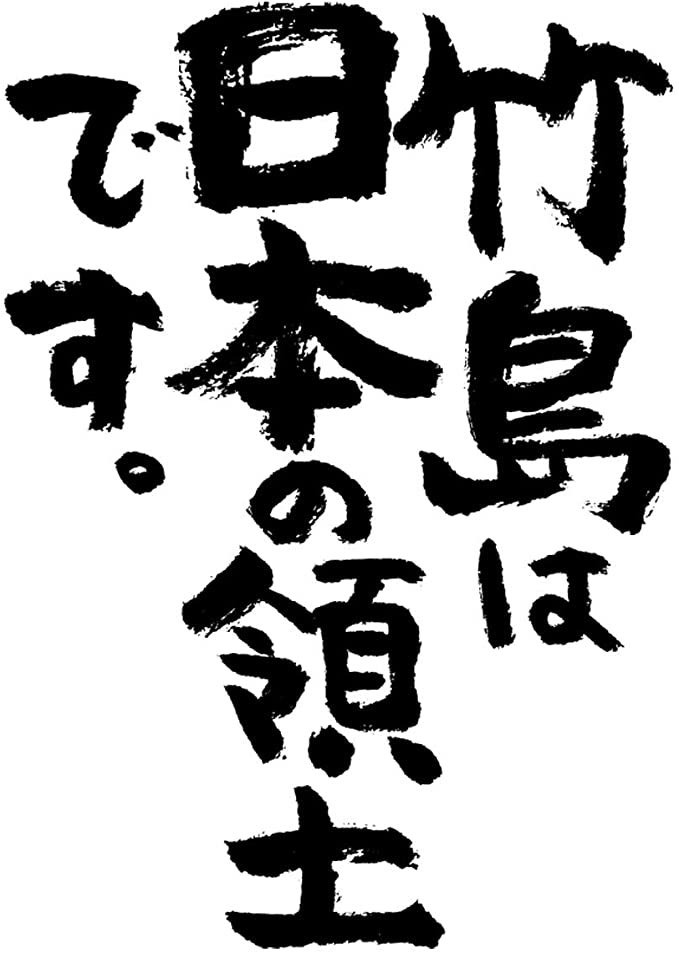 竹島は
日本の領土
です。